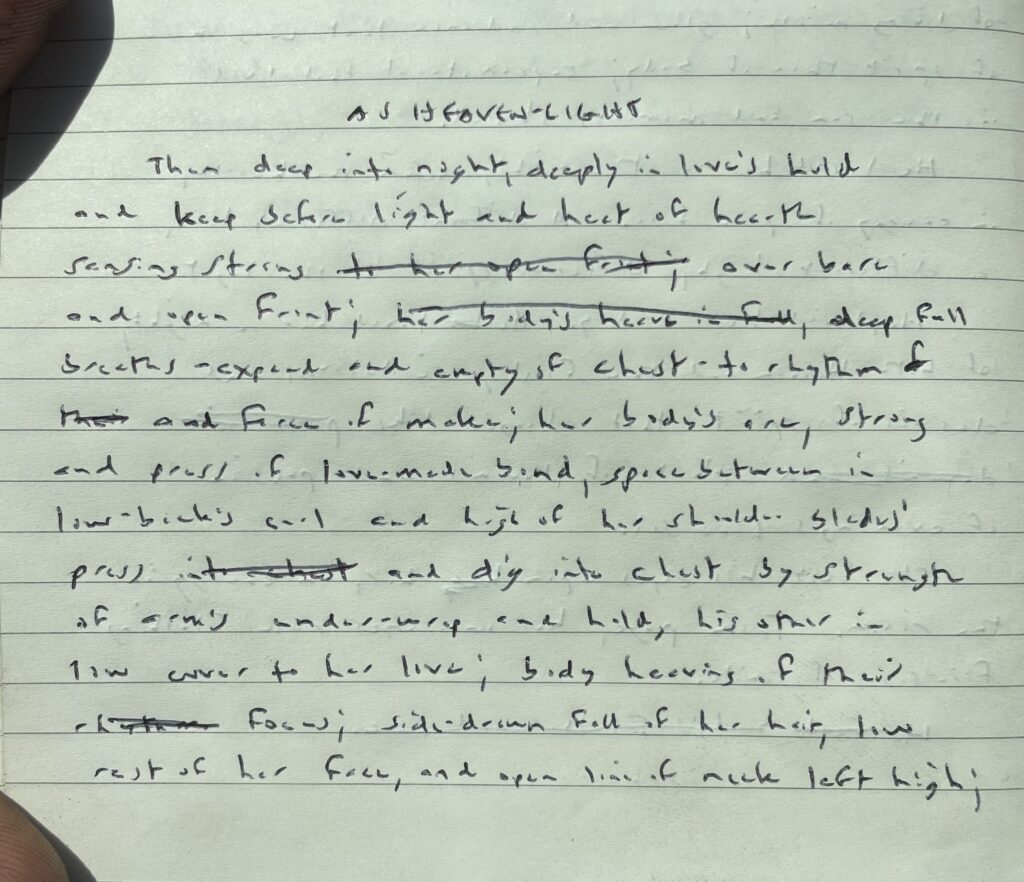 AS HEAVEN-LIGHT
Then deep into night, deeply in love's hold
and keep before light and heat of hearth
sensing strong to her open front; over bare
and open front; her body's heave in full, deep full
breaths - expand and empty of chest - to rhythm of
their and force of make; her body's arc, strong
and press of love-made bond, space between in
low-back's curl and high of her shoulder blades'
press into chest and dig into chest by strength
of arm's under-wrap and hold, his other in
low cover to her live; body heaving of their
rhythm focus; side-drawn fall of her hair, low
rest of her face, and open line of neck left high;